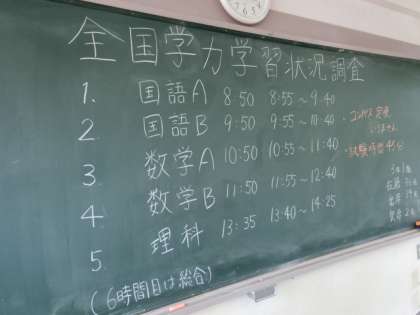 全国学力学習状況調査
1. 国語A 8:50 8:55~9:40
2. 国語B 9:50 9:55~10:40
3. 数学A 10:50 10:55~11:40
4. 数学B 11:50 11:55~12:40
5. 理科 13:35 13:40~14:25
(6時間目は総合)
・コンパス、定規
いりません
・試験時間 45分